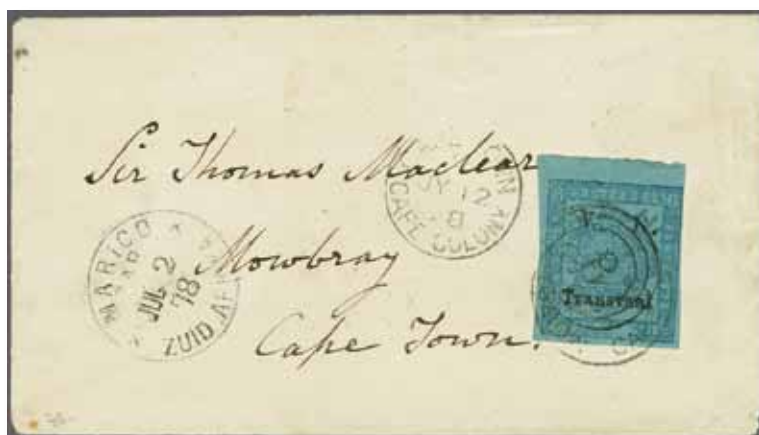 Sir Thomas Maclear
Mowbray
Cape Town.
MARICO
JUL 2
78
ZUID AFR
JY 12
8
CAPE COLONY
V. R.
Transvaal
2
CA